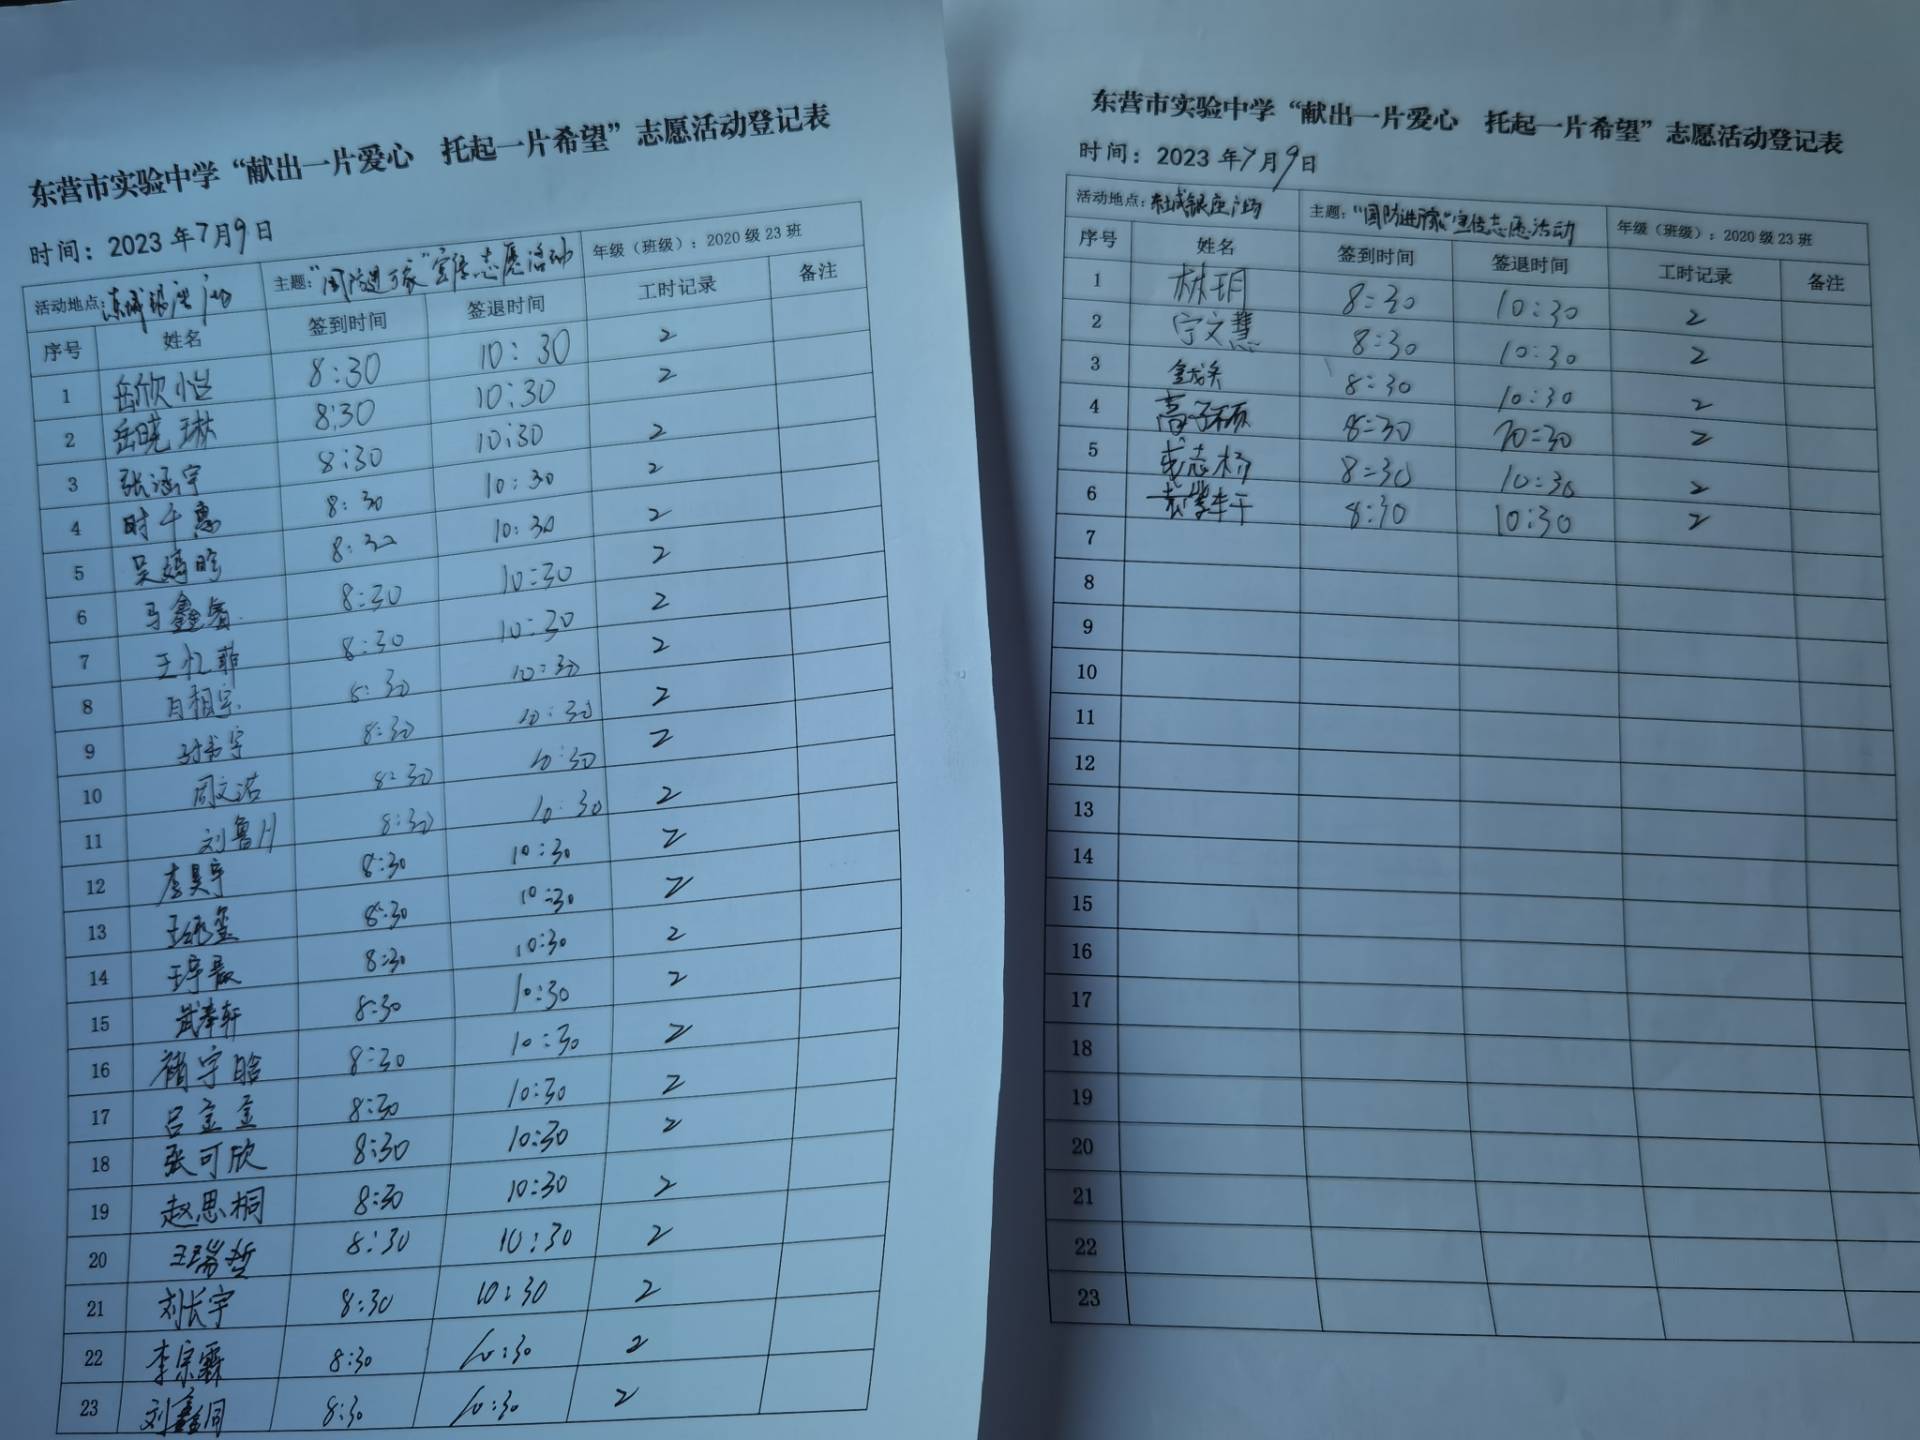 东营市实验中学“献出一片爱心 托起一片希望”志愿活动登记表
时间：2023年7月9日
活动地点：东城银座广场 主题：“国防进万家”宣传志愿活动 年级（班级）：2020级23班
序号 姓名 签到时间 签退时间 工时记录 备注
1 岳欣恺 8:30 10:30 2
2 岳晓琳 8:30 10:30 2
3 张涵宇 8:30 10:30 2
4 时千惠 8:30 10:30 2
5 8:30 10:30 2
6 8:30 10:30 2
7 王忆菲 8:30 10:30 2
8 肖相宇 8:30 10:30 2
9 8:30 10:30 2
10 周文浩 8:30 10:30 2
11 刘鲁川 8:30 10:30 2
12 李昊宇 8:30 10:30 2
13 8:30 10:30 2
14 8:30 10:30 2
15 武奉轩 8:30 10:30 2
16 褚宇晗 8:30 10:30 2
17 吕金金 8:30 10:30 2
18 张可欣 8:30 10:30 2
19 赵思桐 8:30 10:30 2
20 王瑞哲 8:30 10:30 2
21 刘长宇 8:30 10:30 2
22 李宗霖 8:30 10:30 2
23 刘鑫同 8:30 10:30 2
东营市实验中学“献出一片爱心 托起一片希望”志愿活动登记表
时间：2023年7月9日
活动地点：东城银座广场 主题：“国防进万家”宣传志愿活动 年级（班级）：2020级23班
序号 姓名 签到时间 签退时间 工时记录 备注
1 林玥 8:30 10:30 2
2 宁文慧 8:30 10:30 2
3 8:30 10:30 2
4 高子硕 8:30 10:30 2
5 8:30 10:30 2
6 8:30 10:30 2
7
8
9
10
11
12
13
14
15
16
17
18
19
20
21
22
23